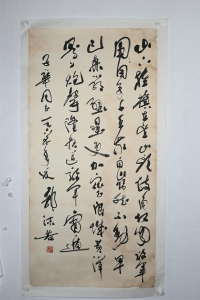 山下旌旗在望山头鼓角相闻敌军
围困万千重我自岿然不动早
已森严壁垒更加众志成城黄洋
界上炮声隆报道敌军宵遁
同志一九六 年 郭沫若